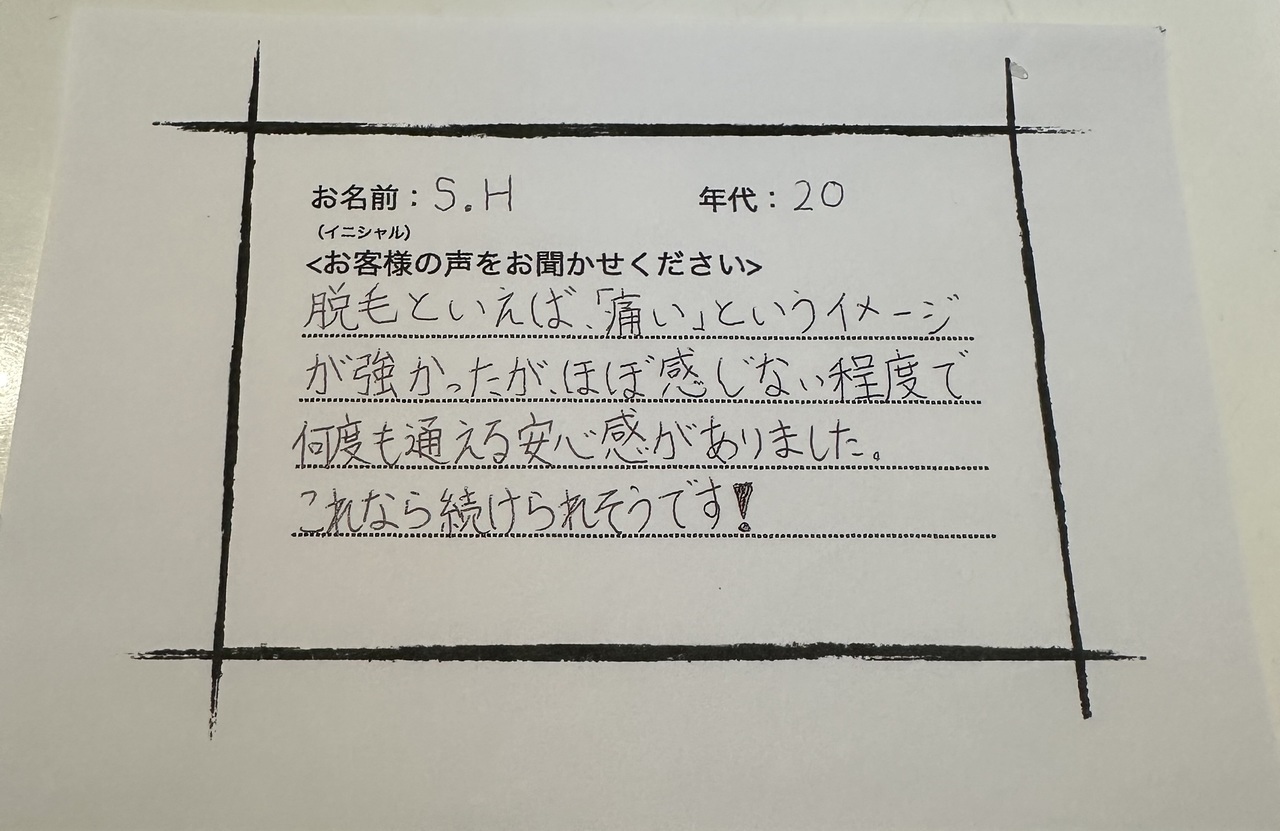 お名前：S.H 年代：20
（イニシャル）
<お客様の声をお聞かせください>
脱毛といえば、「痛い」というイメージ
が強かったが、ほぼ感じない程度で
何度も通える安心感がありました。
これなら続けられそうです！